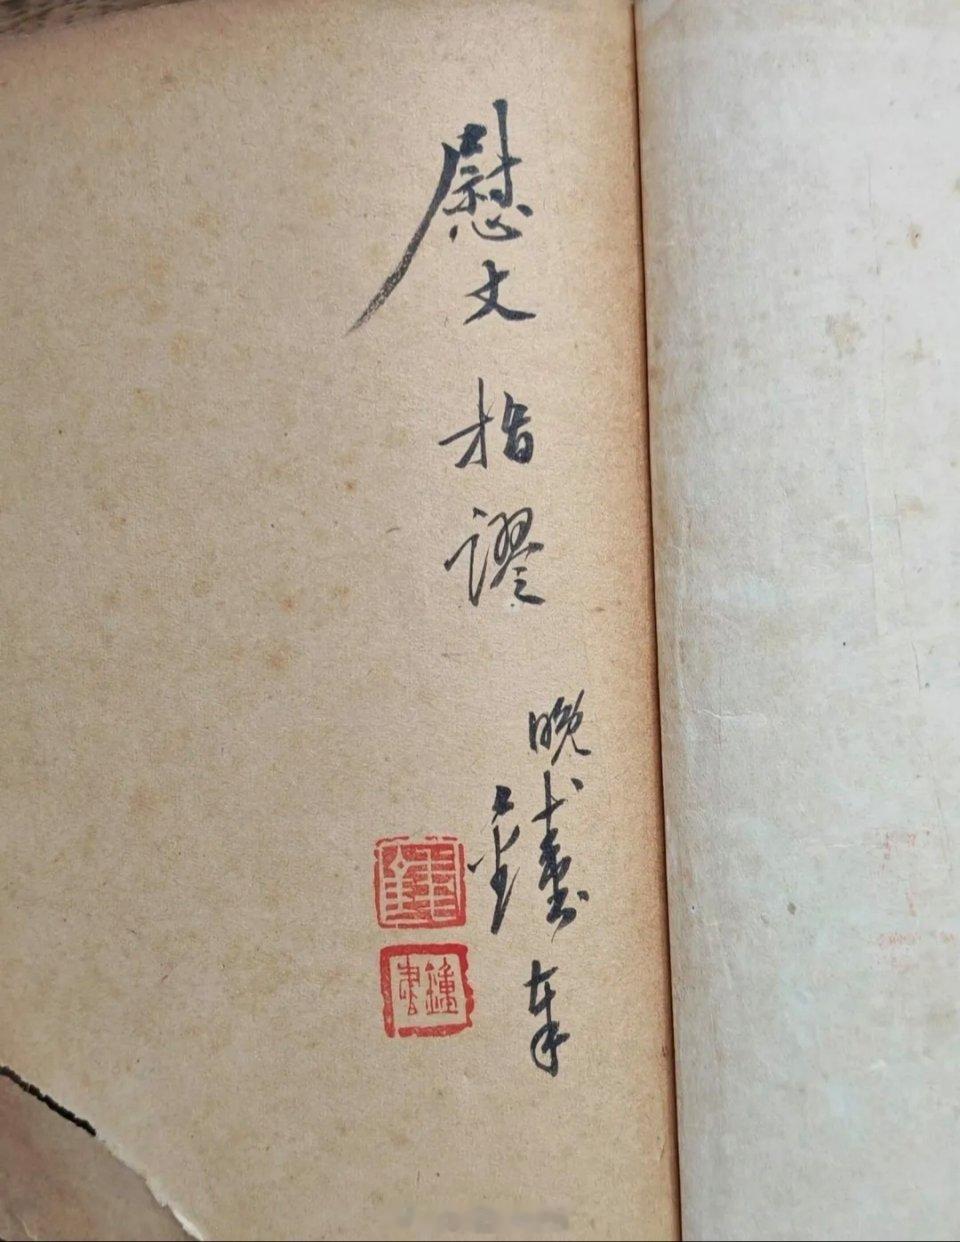 慰丈指謬
晚錢鍾書奉
錢
鍾書